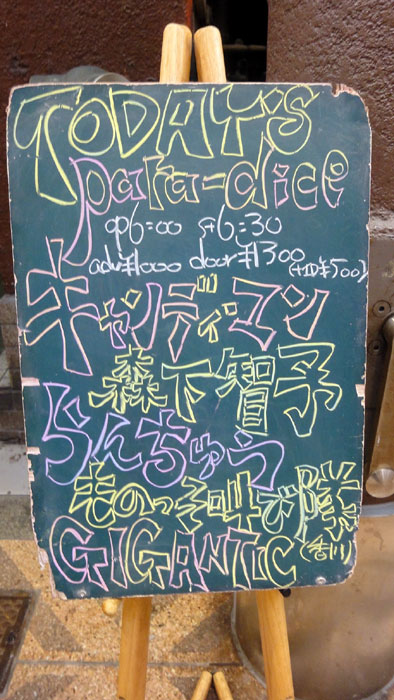 TODAY'S
para-dice
op6:00 st6:30
adv¥1000 door¥1300 (+1D¥500)
キャンディマン
森下智子
らんちゅう
GIGANTIC (香川)